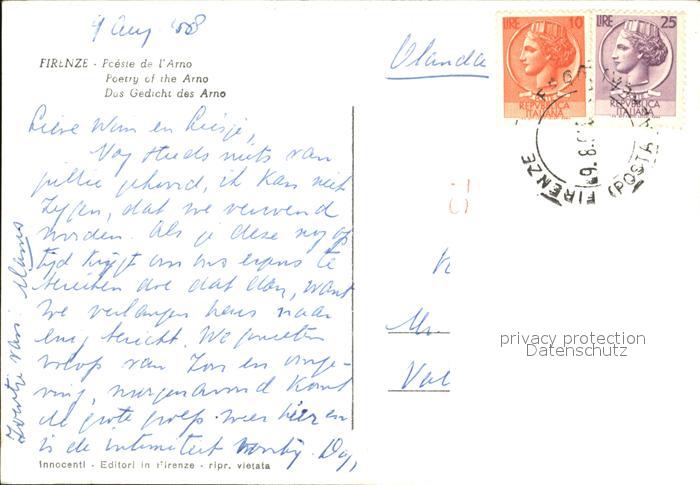 9 Aug.
FIRENZE - Poésie de l'Arno
Poetry of the Arno
Das Gedicht des Arno
Lieve Wim en Liesje,
Nog steeds niets van
jullie gehoord, ik kan niet
zeggen, dat we verwend
worden. Als je deze nog op
tijd krijgt om ons ergens te
bereiken doe dat dan, want
we verlangen naar
enig bericht. We genieten
volop van zon en omge-
ving, morgenavond komt
de grote groep weer hier en
is de intimiteit voorbij. Dag,
Zoentje van: Mams
Innocenti - Editori in Firenze - ripr. vietata
Olanda
LIRE 10
REPVBBLICA
ITALIANA
LIRE 25
REPVBBLICA
ITALIANA
FIRENZE
FIRENZE
(POSTA
9.8.
privacy protection
Datenschutz